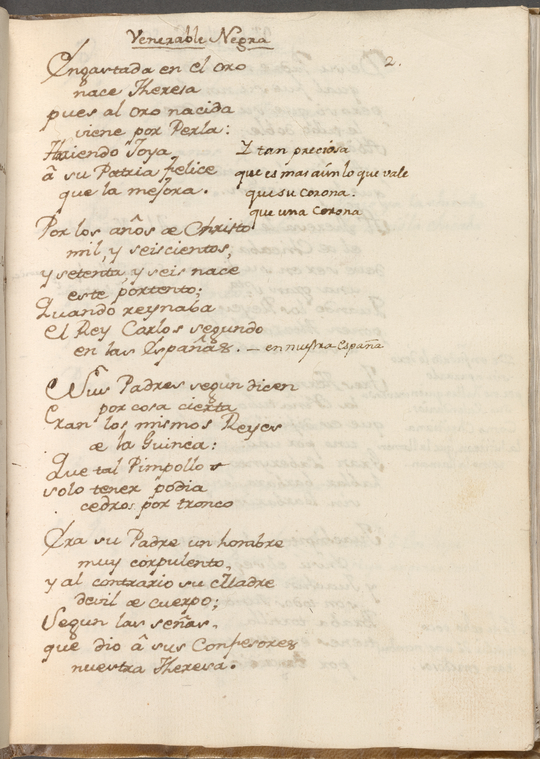 Venerable Negra
2.
Engastada en el oro
nace Theresa
pues al oro nacida
viene por Perla:
Haziendo Joya
â su Patria felice
que la mejora.
Y tan preciosa
que es mas aún lo que vale
que su corona.
que una corona
Por los años de Christo
mil, y seiscientos,
y setenta, y seis nace
este portento;
Quando reynaba
el Rey Carlos segundo
en las Españas. — en nuestra España
Sus Padres segun dicen
por cosa cierta
Eran los mismos Reyes
de la Guinea:
Que tal Pimpollo
solo tener podia
cedros por tronco
Era su Padre un hombre
muy corpulento,
y al contrario su Madre
devil de cuerpo;
Segun las señas,
que dio â sus Confesores
nuestra Theresa.